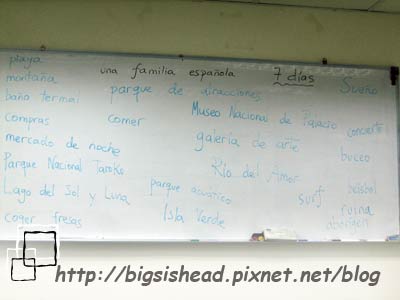 playa
una familia española 7 días
Sueño
montaña
parque de atracciones
baño termal
Museo Nacional de Palacio
compras comer
concierto
galería de arte
mercado de noche
buceo
Parque Nacional Taroko
Río del Amor
Lago del Sol y Luna
parque acuático
surf
béisbol
coger fresas
Isla Verde
ruina
aborigen
http://bigsishead.pixnet.net/blog